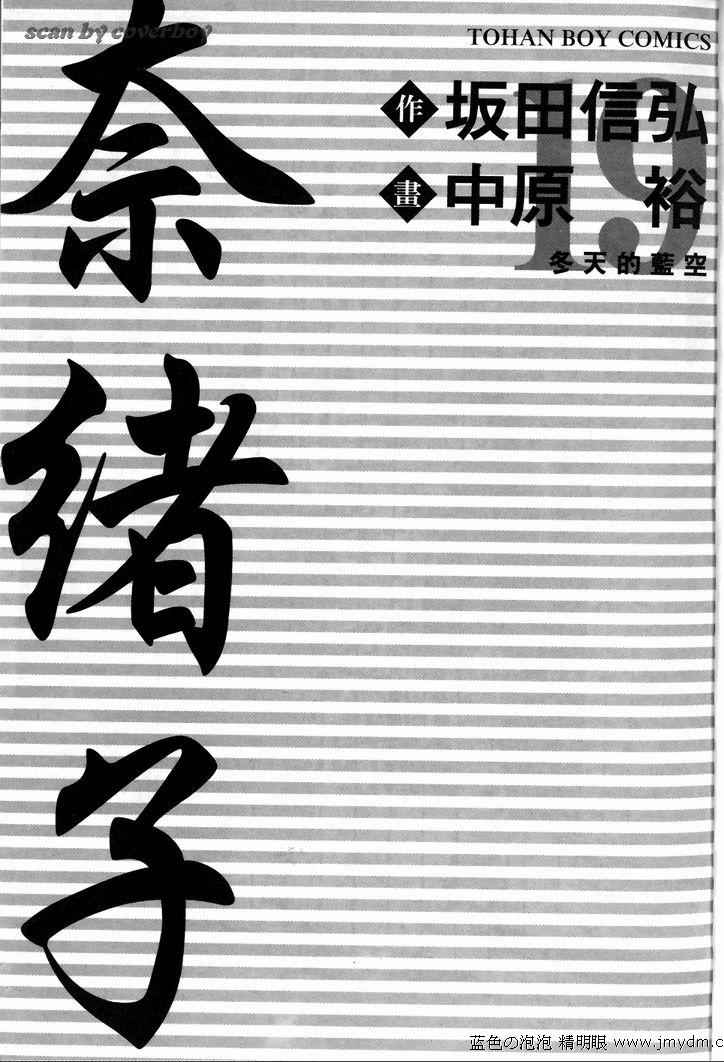 scan by coverboy
TOHAN BOY COMICS
奈緒子
19
作 坂田信弘
畫 中原 裕
冬天的藍空
蓝色の泡泡 精明眼 www.jmydm.c